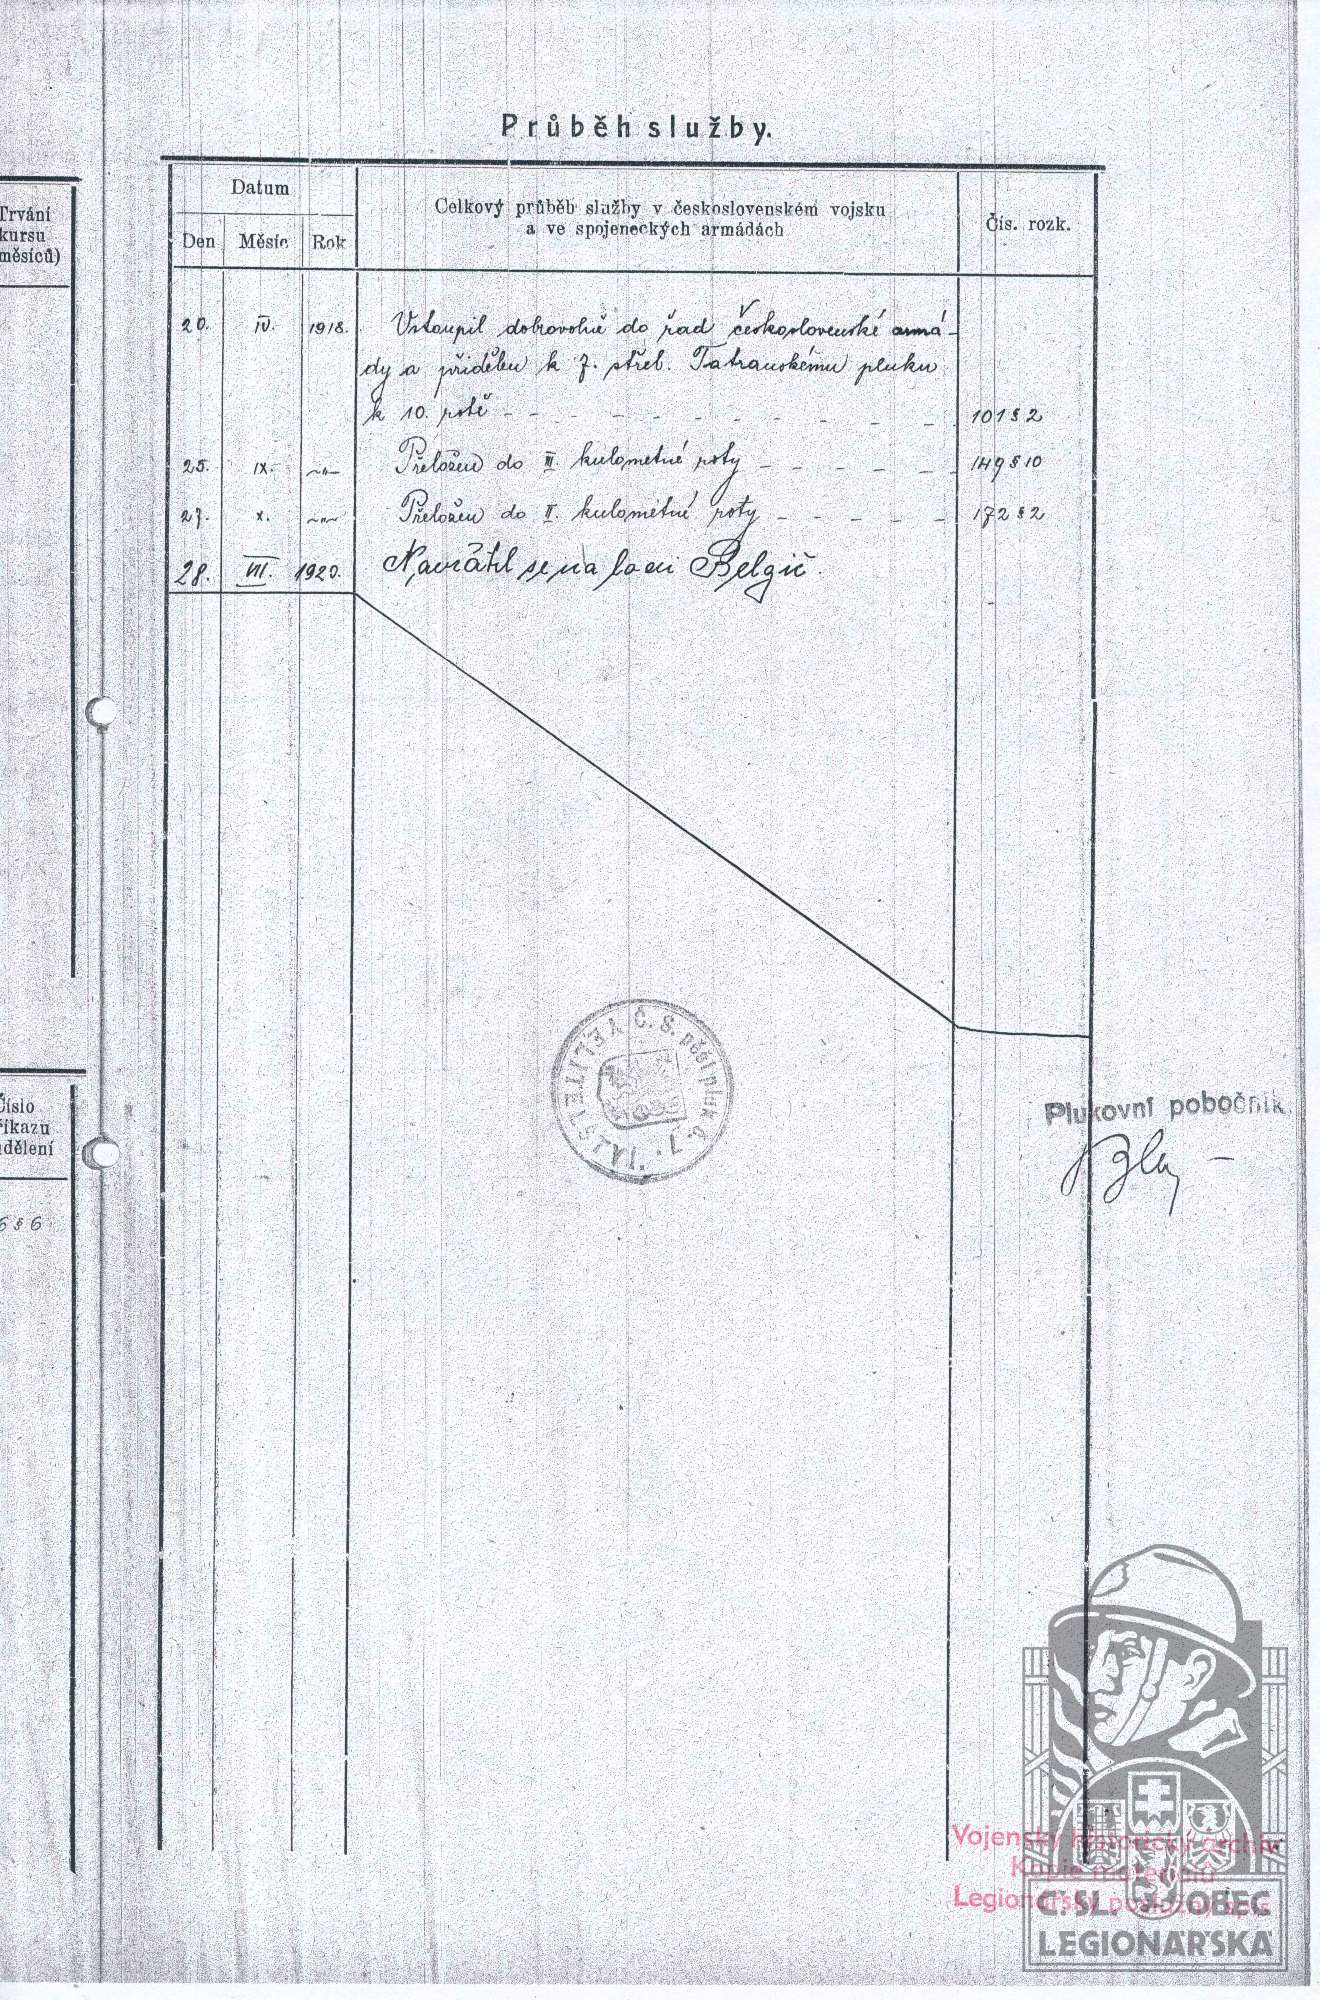 Průběh služby.
Trvání
kursu
měsíců)
Datum
Den Měsíc Rok
Celkový průběh služby v československém vojsku
a ve spojeneckých armádách
Čís. rozk.
20. IV. 1918. Vstoupil dobrovolně do řad československé armá-
dy a přidělen k 7. střel. Tatranskému pluku
k 10. rotě - - - - - - - - - - 101 § 2
25. IX. -"- Přeložen do III. kulometné roty - - - - - - 149 § 10
27. X. -"- Přeložen do II. kulometné roty - - - - - 172 § 2
28. VII. 1920. Navrátil se na lodi Belgič.
VELITELSTVÍ Č. S. pěší pluk č. 7.
Číslo
říkazu
udělení
6 § 6
Plukovní pobočník
Vojenský historický archiv
Kopie materiálů
Legionářský poslužný spis
Č. SL. OBEC
LEGIONÁŘSKÁ